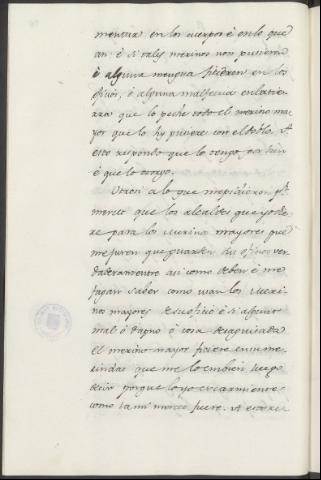 mengua en los cuerpos é en lo que
an: é si tales merinos non pusieren
é alguna mengua ficieren en los
oficios, ó alguna malfetria en la tier-
ra que lo peche todo el merino ma-
yor que lo hy pusiere con el doblo. A
esto respondo que lo tengo por bien
é que lo otorgo.
Otrosi a lo que me pidieron por
merced que los alcaldes que yo die-
re para los merinos mayores que
me juren que guarden su oficio ver-
daderamente asi como deben é me
fagan saber como usan los meri-
nos mayores de su oficio é si alguno
mal ó dagno ó cosa desaguisada
el merino mayor ficiere en su me-
rindat que me lo embien luego
decir porque lo yo escarmiente
como la mi merced fuere. A esto res-